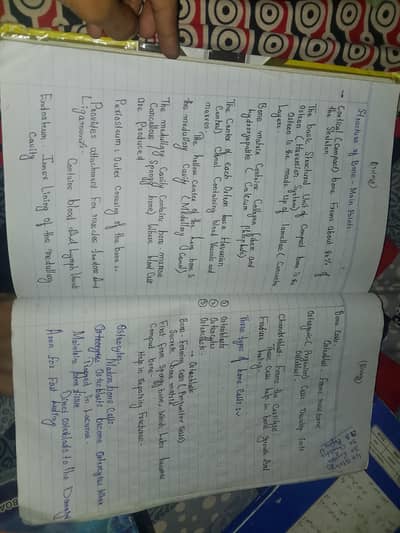 (Living)
Structure of Bone: Main Points
→ Cortical (Compact) bone Forms about 80% of
the Skeleton
The basic Structural Unit of Compact bone is the
Osteon (Haversian System)
Osteon is the made up of lamellae (Concentric
layers.
Bone matrix Contains Collagen fibers and
hydroxyapatite (Calcium phosphate)
The Center of each Osteon has a Haversian
(Central) Canal Containing blood vessels and
nerves.
The hollow center of the long bone is
the medullary Cavity (Medullary Canal)
The medullary Cavity Contains bone marrow
Cancellous (Spongy bone) Where blood Cells
are produced
Periosteum: Outer Covering of the bone.
Provides attachment For muscles, tendons and
Ligaments. Contains blood and lymph vessels
Endosteum: Inner Lining of the medullary
Cavity
(Living)
Bone Cells
Osteoblast: Forms new bone
Osteogenic (Progenitor) Cells: Develop into
Osteoblasts
Chondroblast: Forms the Cartilage
These Cells help in bone growth and
Fracture healing.
Three types of bone cells:-
① Osteoblasts
② Osteocytes
③ Osteoclasts
→ Osteoblasts
Bone Forming Cells
Secrete (Bone matrix)
First Form Spongy bone, Which later become
Compact bone.
Help in repairing Fractures.
Osteocytes: Mature bone Cells
Osteoblasts become Osteocytes When
Trapped in Lacunae.
Maintain bone tissue
Direct osteoblasts to the Damaged
Area for Fast healing